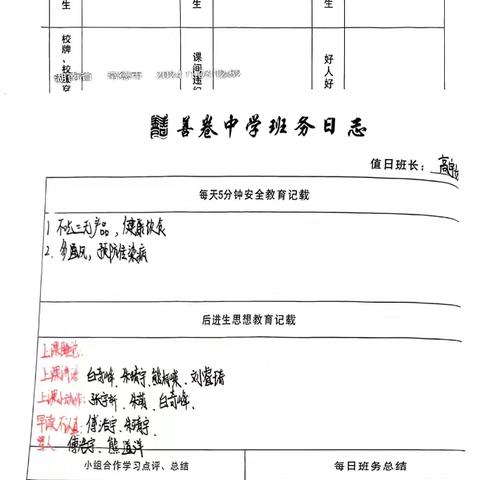 生
生
校牌、校
课间违纪
好人好
善卷中学班务日志
值日班长：高
每天5分钟安全教育记载
1. 不吃三无产品，健康饮食
2. 多通风，预防传染病
后进生思想教育记载
上课睡觉：
上课讲话：白奇峰、朱晴宇、熊
上课小动作：张宇轩、朱 、白奇峰、
早读不认真：傅浩宇、朱晴宇、
骂人：傅浩宇、熊 洋
小组合作学习点评、总结
每日班务总结